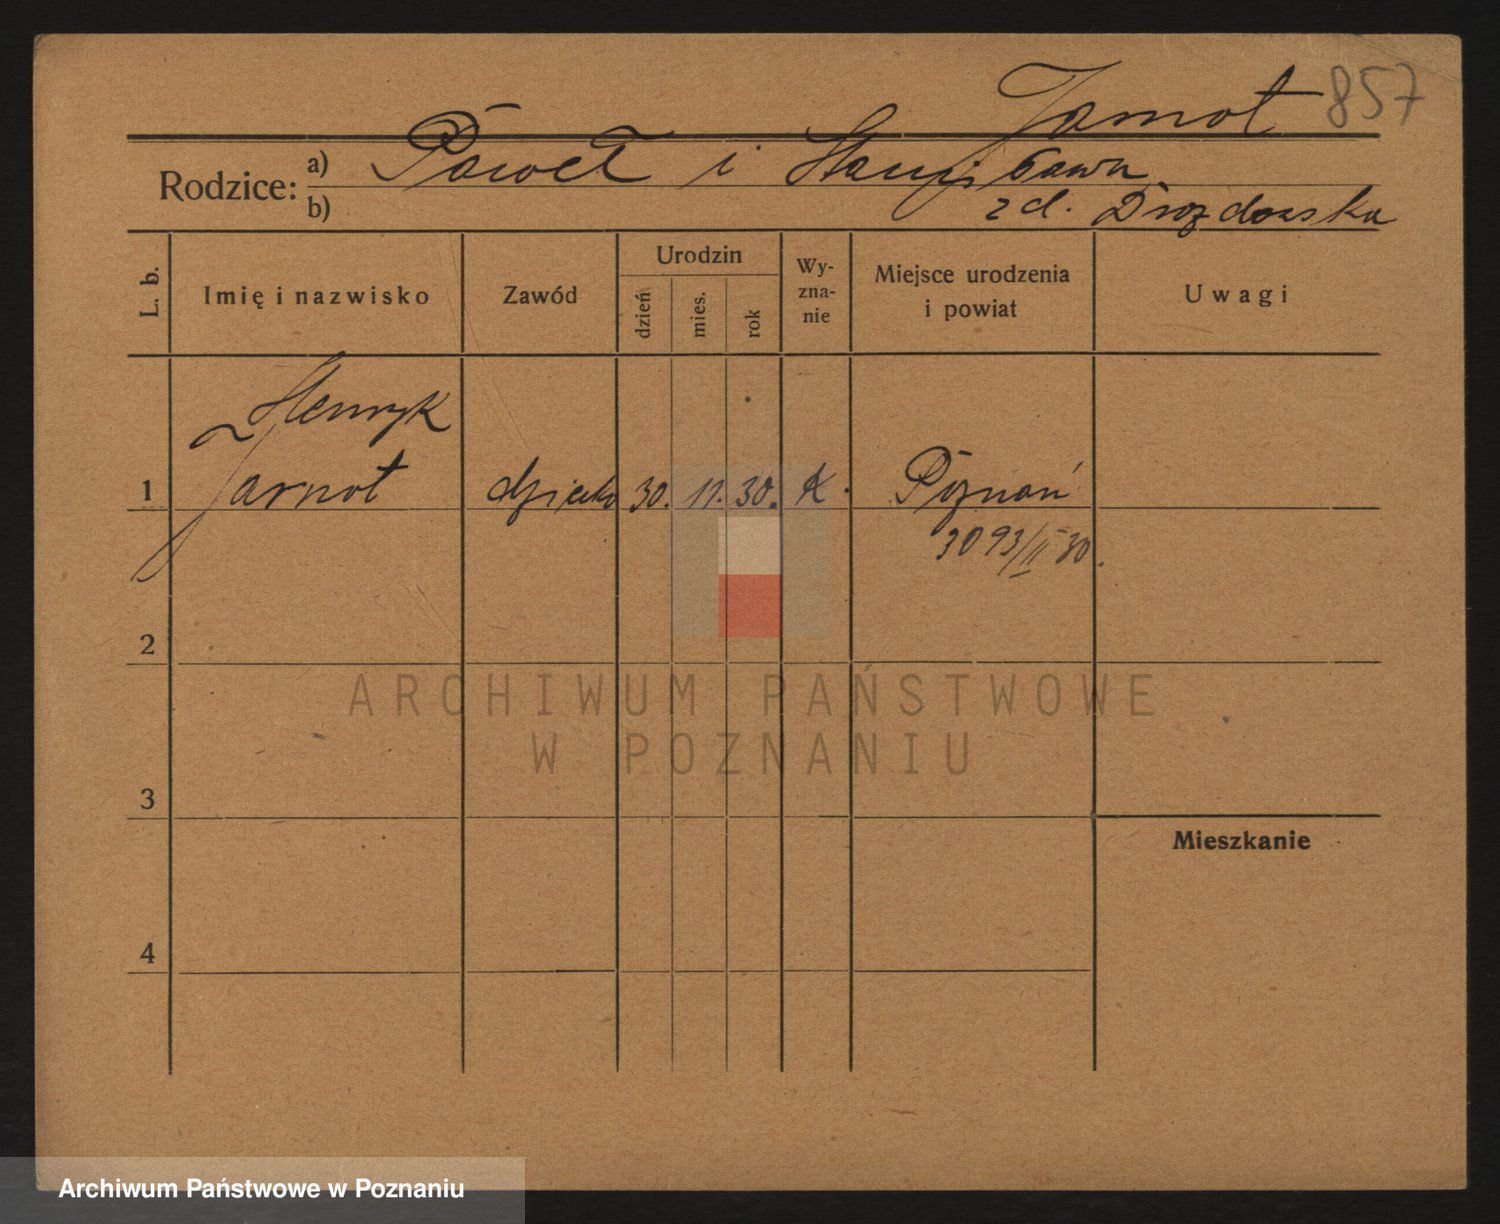 Jarnot 857
Rodzice: a) Paweł i Stanisława
b) zd. Drozdowska
L. b. Imię i nazwisko Zawód Urodzin dzień mies. rok Wy-zna-nie Miejsce urodzenia i powiat Uwagi
Henryk
1 Jarnot dziecko 30. 11. 30. K. Poznań
3093/II 30.
2
ARCHIWUM PAŃSTWOWE
W POZNANIU
3
Mieszkanie
4
Archiwum Państwowe w Poznaniu